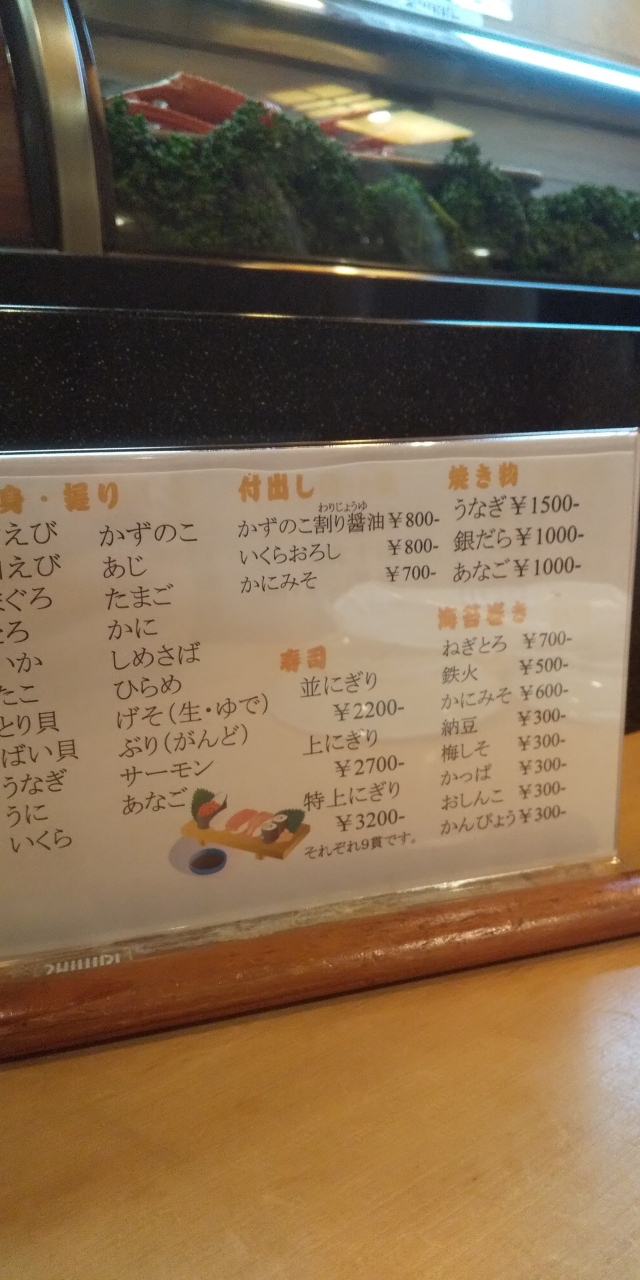 身・握り
えび
えび
まぐろ
とろ
いか
たこ
とり貝
ばい貝
うなぎ
うに
いくら
かずのこ
あじ
たまご
かに
しめさば
ひらめ
げそ（生・ゆで）
ぶり（がんど）
サーモン
あなご
付出し
わりじょうゆ
かずのこ割り醤油￥800-
いくらおろし ￥800-
かにみそ ￥700-
寿司
並にぎり
￥2200-
上にぎり
￥2700-
特上にぎり
￥3200-
それぞれ9貫です。
焼き物
うなぎ￥1500-
銀だら￥1000-
あなご￥1000-
海苔巻き
ねぎとろ ￥700-
鉄火 ￥500-
かにみそ ￥600-
納豆 ￥300-
梅しそ ￥300-
かっぱ ￥300-
おしんこ ￥300-
かんぴょう￥300-